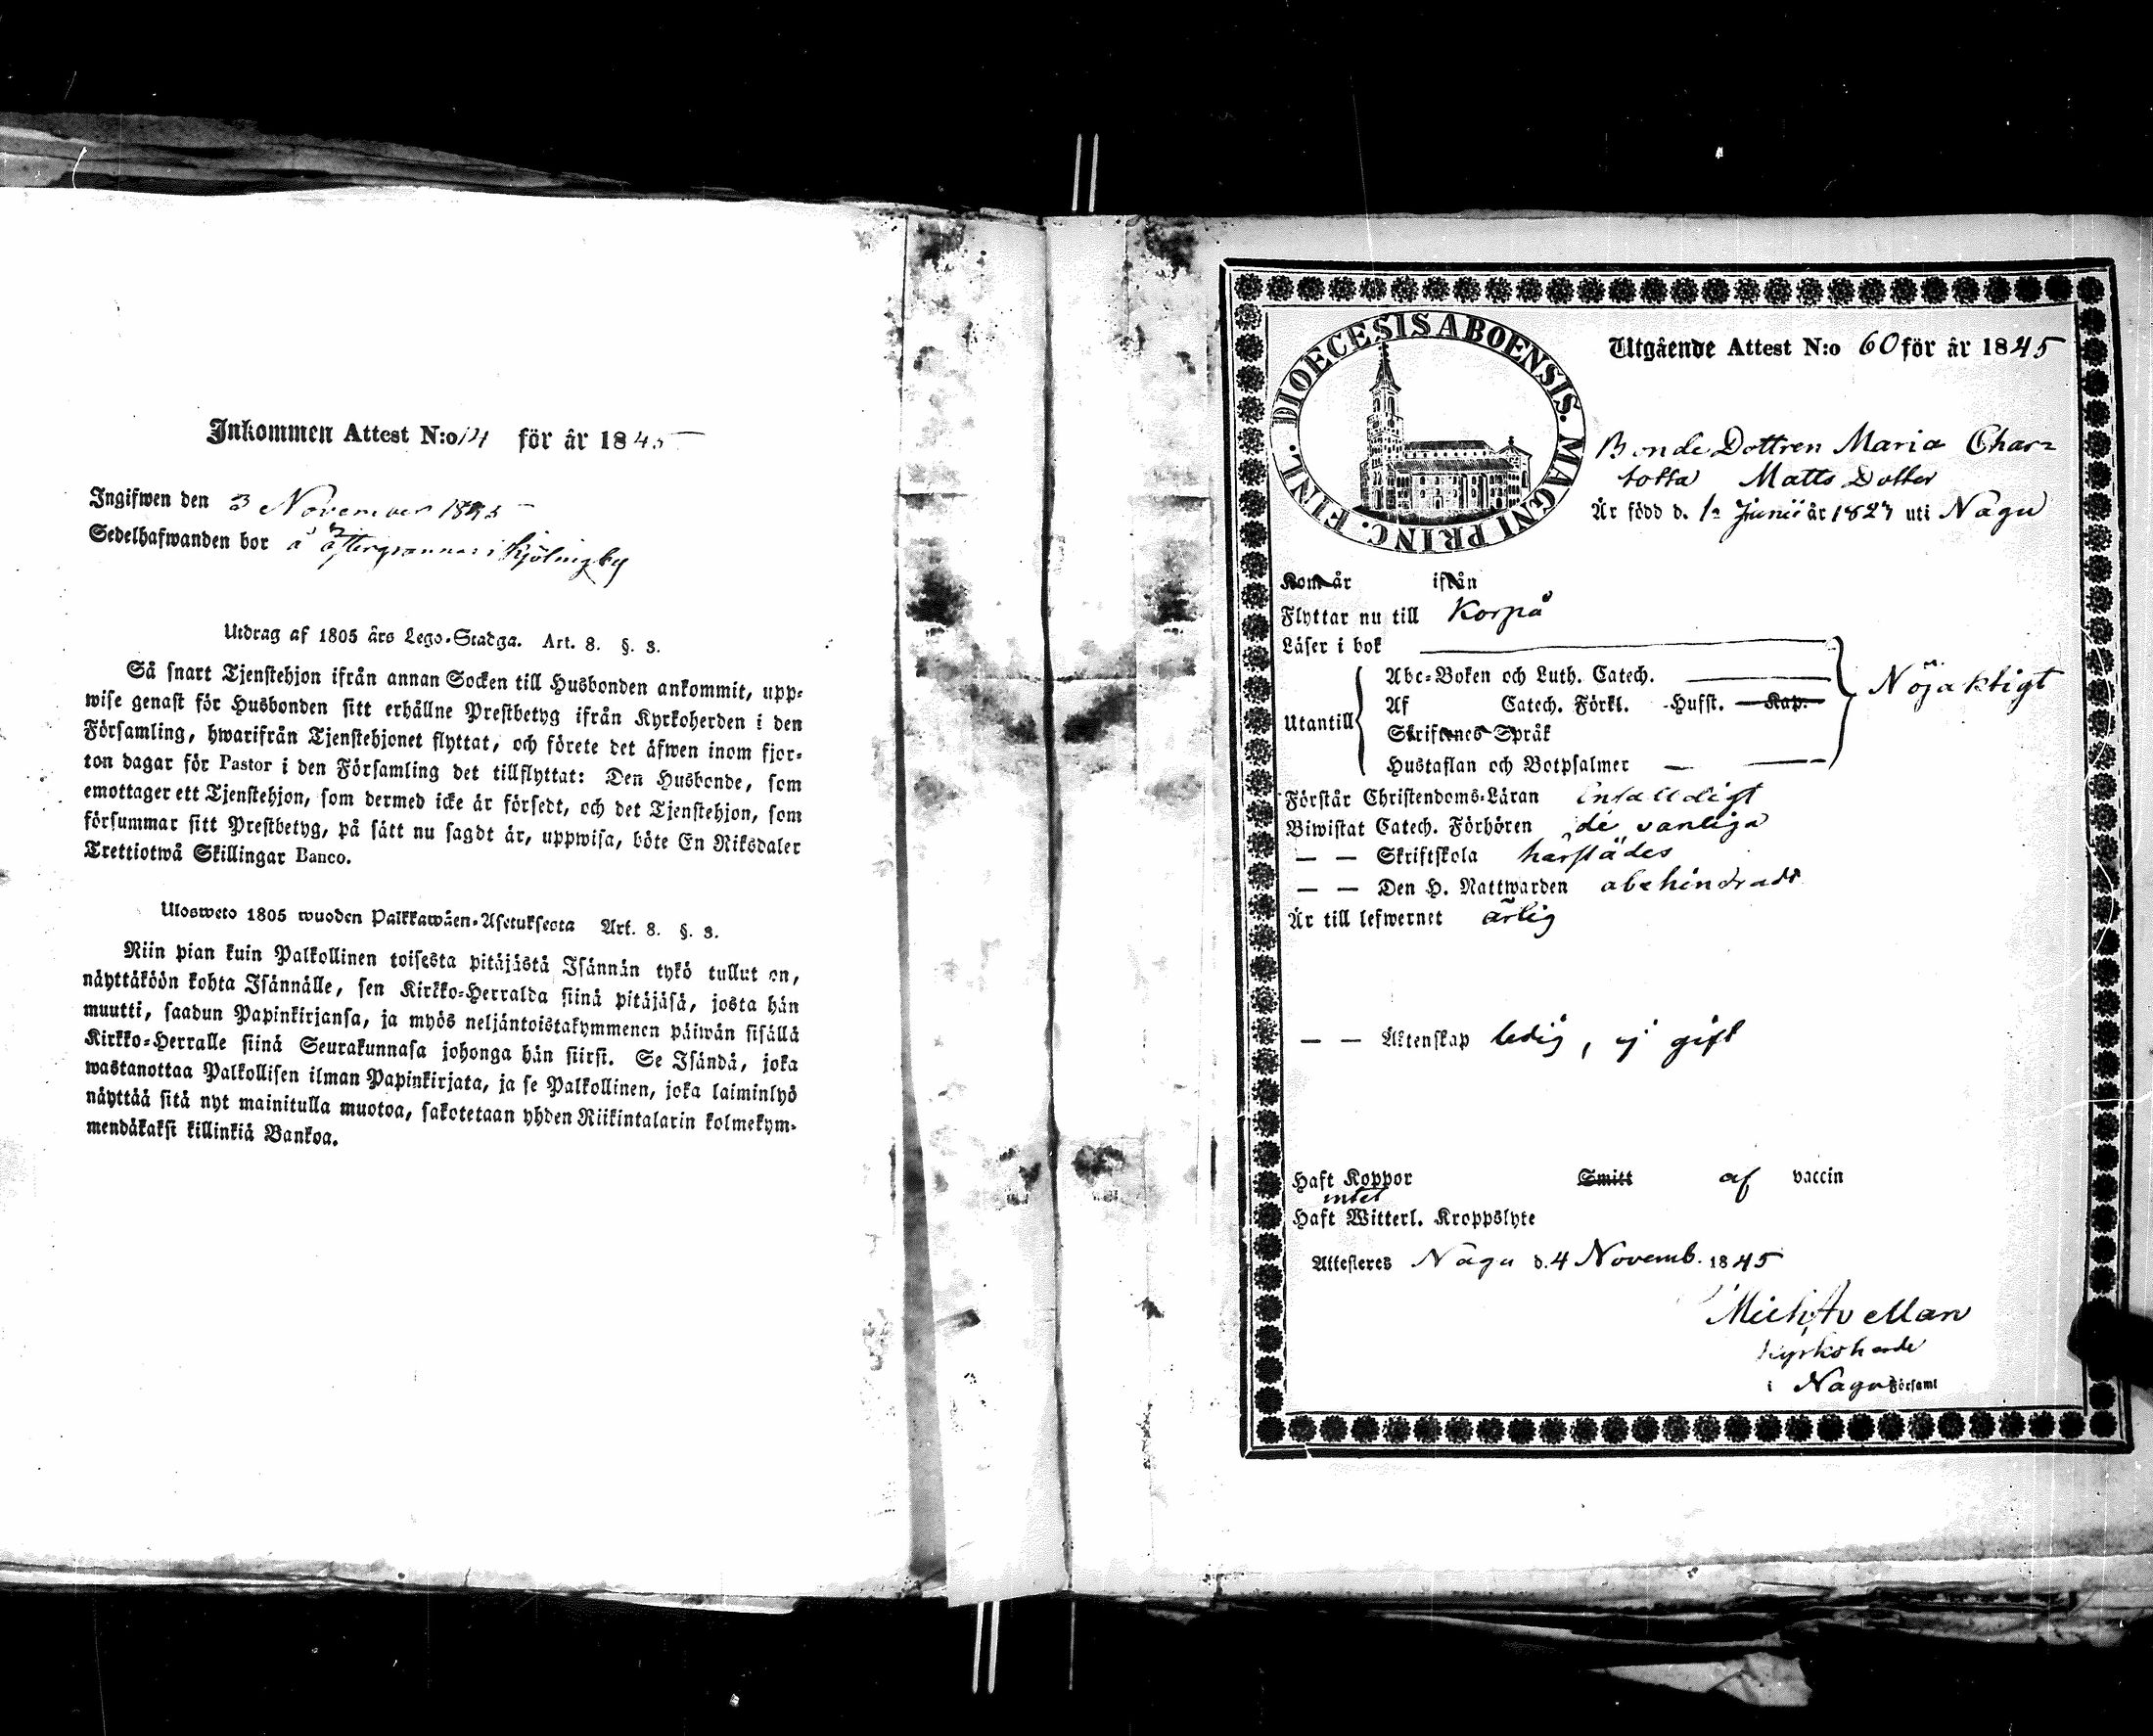 Inkommen Attest N:o 14 för år 1845
Ingifwen den 3 November 1845
Sedelhafwanden bor å Öfvergrannas i Kjölingby
Utdrag af 1805 års Lego-Stadga. Art. 8. §. 3.
Så snart Tjenstehjon ifrån annan Socken till Husbonden ankommit, upp-
wise genast för Husbonden sitt erhållne Prestbetyg ifrån Kyrkoherden i den
Församling, hwarifrån Tjenstehjonet flyttat, och förete det äfwen inom fjor-
ton dagar för Pastor i den Församling det tillflyttat: Den Husbonde, som
emottager ett Tjenstehjon, som dermed icke är försedt, och det Tjenstehjon, som
försummar sitt Prestbetyg, på sätt nu sagdt är, uppwisa, böte En Riksdaler
Trettiotwå Skillingar Banco.
Ulosweto 1805 wuoden Palkkawäen-Asetuksesta Art. 8. §. 3.
Niin pian kuin Palkollinen toisesta pitäjästä Isännän tykö tullut on,
näyttäköön kohta Isännälle, sen Kirkko-Herralda siinä pitäjäsä, josta hän
muutti, saadun Papinkirjansa, ja myös neljäntoistakymmenen päiwän sisällä
Kirkko-Herralle siinä Seurakunnasa johonga hän siirsi. Se Isändä, joka
wastanottaa Palkollisen ilman Papinkirjata, ja se Palkollinen, joka laiminlyö
näyttää sitä nyt mainitulla muotoa, sakotetaan yhden Riikintalarin kolmekym-
mendäkaksi killinkiä Bankoa.
DIOECESIS ABOENSIS. MAGNI PRINC. FINL.
Utgående Attest N:o 60 för år 1845
Bonde Dottren Maria Char-
lotta Matts Dotter
Är född d. 12 Junii år 1827 uti Nagu
Kom år ifrån
Flyttar nu till Korpå
Läser i bok
Utantill
Abc-Boken och Luth. Catech.
Af Catech. Förkl. Hufst. Kap.
Skriftenes Språk
Hustaflan och Botpsalmer
Nöjaktigt
Förstår Christendoms-Läran enfalldigt
Biwistat Catech. Förhören de vanliga
— — Skriftskola härstädes
— — Den H. Nattwarden obehindradt
Är till lefwernet ärlig
— — Äktenskap ledig, ej gift
Haft Koppor Smitt af vaccin
intet
Haft Witterl. Kroppslyte
Attesteres Nagu d. 4 Novemb. 1845
Mich Avellan
Kyrkoherde
i Nagu Församl